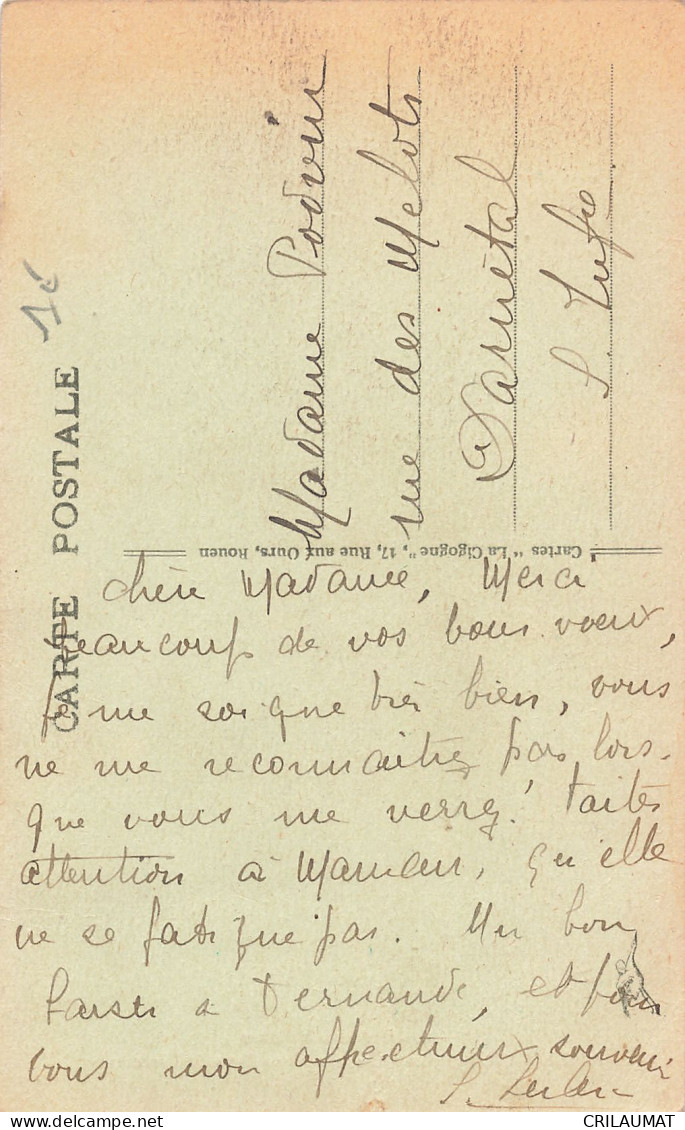 CARTE POSTALE
1€
Madame Podvin
rue des Melots
Darnétal
S. Infre
Cartes "La Cigogne", 17, Rue aux Ours, Rouen
Chère Madame, Merci
beaucoup de vos bons voeux,
Je me soigne très bien, vous
ne me reconnaitrez pas lors-
que vous me verrez! Faites
attention à Maman, qu'elle
ne se fatigue pas. Un bon
baiser à Fernande, et pour
vous mon affectueux souvenir
delcampe.net
CRILAUMAT